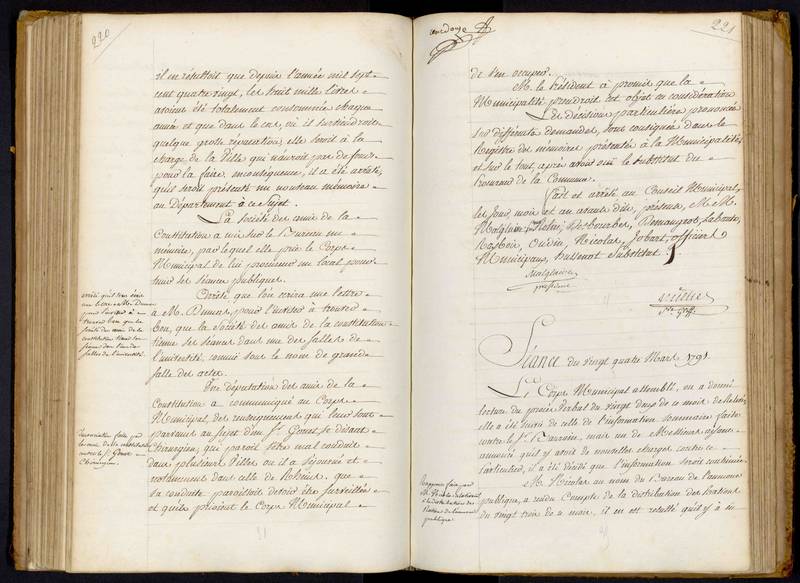 220
il en résultoit que depuis l'année mil sept
cent quatre vingt, les huit mille livres
avoient été totalement consommées chaque
année et que dans le cas, où il surviendroit
quelque grosse réparation, elle seroit à la
charge de la Ville qui n'auroit pas de fonds
pour la faire, en conséquence, il a été arrêté,
qu'il seroit présenté un nouveau mémoire
au Département à ce sujet.
La Société des amis de la
Constitution a mis sur le Bureau un
mémoire, par lequel elle prie le Corps
Municipal de lui procurer un local pour
tenir ses séances publiques.
Arrêté que l'on écrira une lettre
à M. Dumont, pour l'inviter à trouver
bon, que la Société des amis de la constitution
tienne ses séances dans une des salles de
l'université, connue sous le nom de grande
salle des actes.
Une députation des amis de la
Constitution a communiqué au Corps
Municipal, des renseignements qui leur sont
parvenus au sujet d'un Sr. Genet se disant
Chirurgien, qui paroit s'être mal conduit
dans plusieurs Villes où il a séjourné et
notamment dans celle de Rheims, que
sa conduite paroissoit devoir être surveillée
et qu'ils prioient le Corps Municipal
arrêté qu'il sera écrit
une lettre à M. Dumont
pour l'inviter à
trouver bon que la
société des amis de la
constitution tienne ses
séances dans l'une des
salles de l'université.
Dénonciation faite par
les amis de la constitution
contre le Sr. Genet
Chirurgien.
221
de s'en occuper.
M. le Président a promis que la
Municipalité prendroit cet objet en considération
Les décisions particulières prononcées
sur différentes demandes, sont consignées dans le
Registre des mémoires présentés à la Municipalité,
et sur le tout, après avoir ouï le substitut du
Procureur de la Commune.
Fait et arrêté au Conseil Municipal,
les Jour, mois et an avant dits, présens, M. M.
Oudin, Nicolas, Jobart, officiers
Municipaux, substitut.
président
Séance du vingt quatre Mars 1791.
Le Corps Municipal assemblé, on a donné
lecture du procès verbal du vingt deux de ce mois
elle a été suivie de celle de l'information sommaire faite
contre le Sr. mais un de Messieurs ayant
annoncé qu'il y avoit de nouvelles charges contre ce
Particulier, il a été décidé que l'information seroit continuée.
M. Nicolas au nom du Bureau de l'aumône
publique, a rendu Compte de la distribution des portions
du vingt trois de ce mois, il en est résulté qu'il y a eu
Rapport fait par
M. Nicolas relativement
à la distribution des
Portions de l'aumône
publique